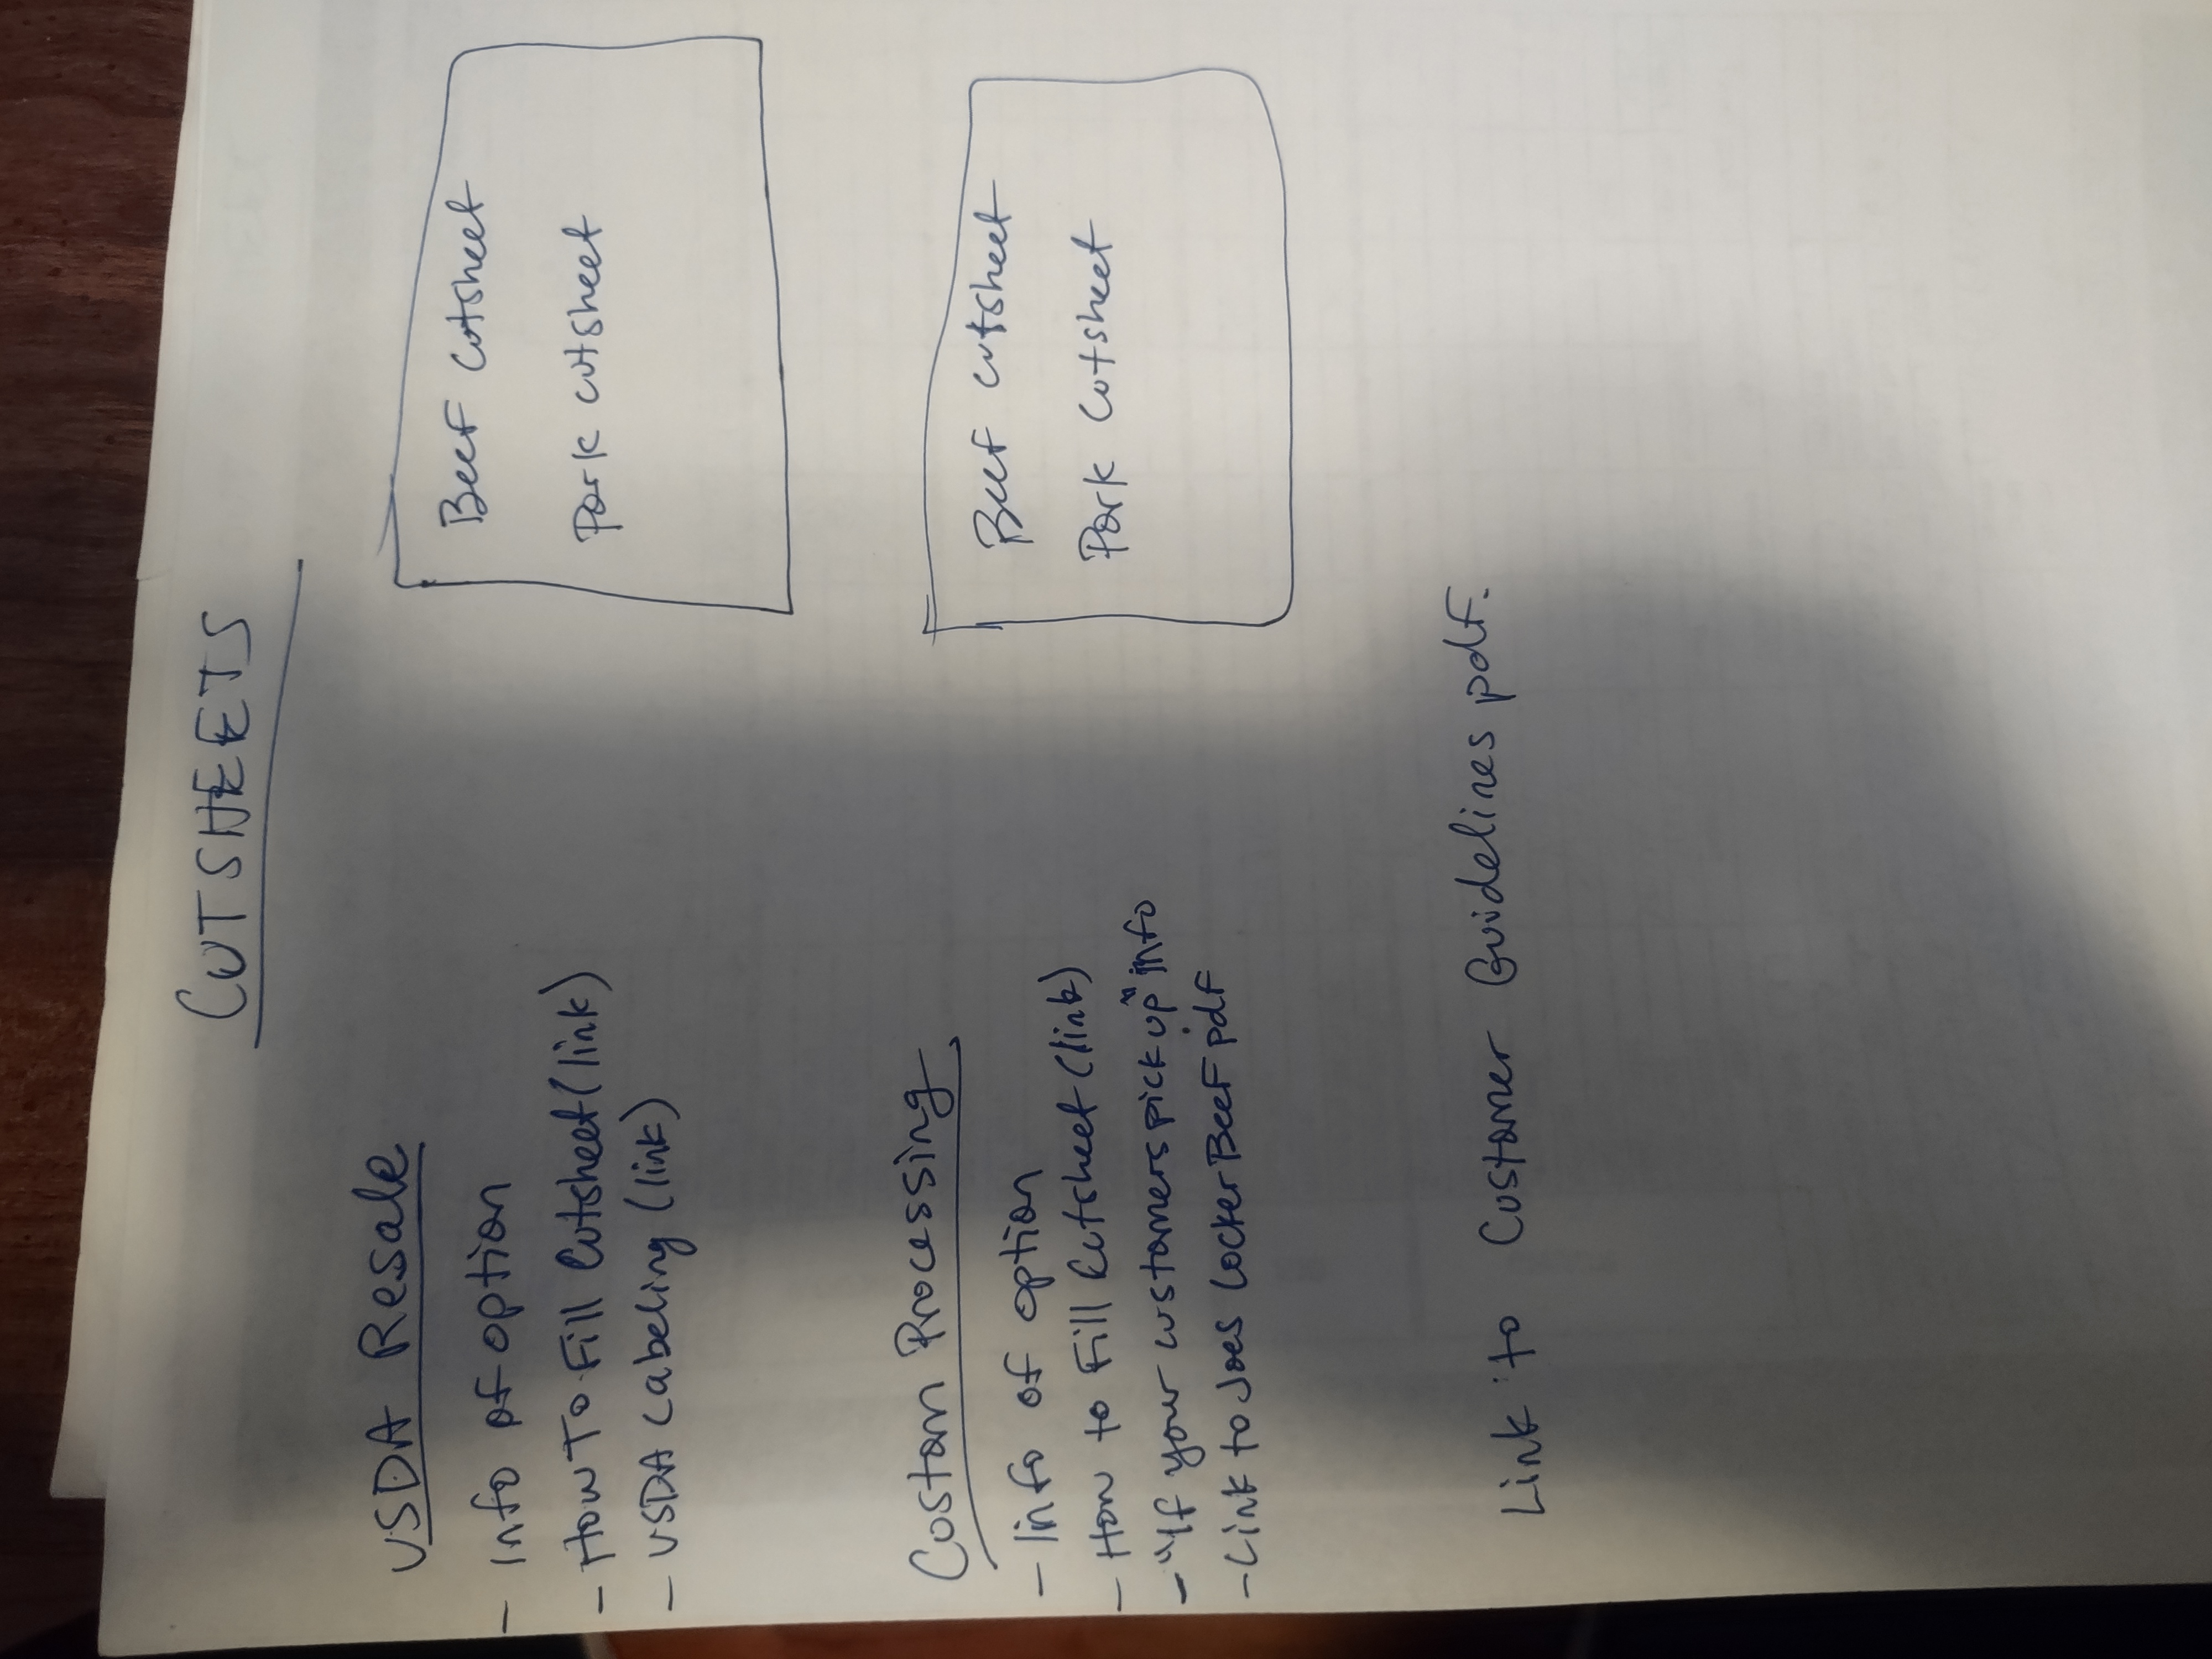 CUTSHEETS
USDA Resale
- Info of option
- How To Fill Cutsheet (link)
- USDA Labeling (link)
Beef Cutsheet
Pork cutsheet
Custom Processing
- Info of option
- How to Fill Cutsheet (link)
- "If your customers pick up" info
- Link to Joes Locker Beef pdf
Beef cutsheet
Pork cutsheet
Link to Customer Guidelines pdf.